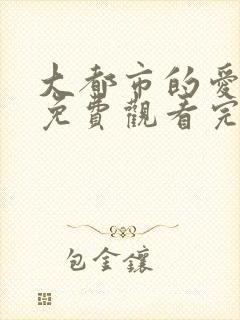 大都市的愛
免費觀看完
包金鑲